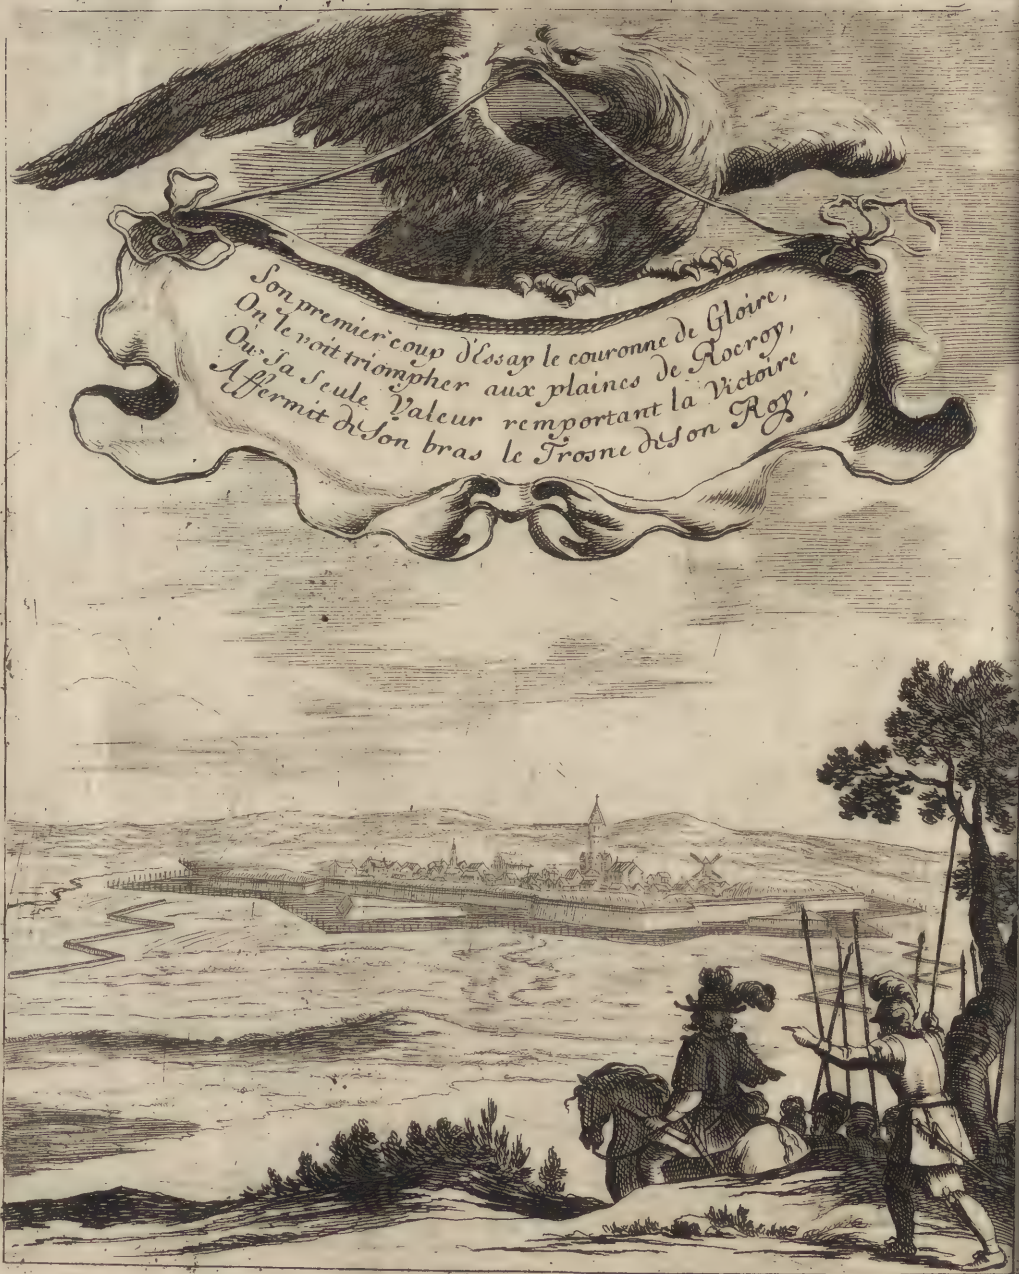 Son premier coup d'Essay le couronne de Gloire,
On le voit triompher aux plaines de Rocroy,
Ou Sa Seule Valeur remportant la Victoire
Affermit de Son bras le Trosne de Son Roy.